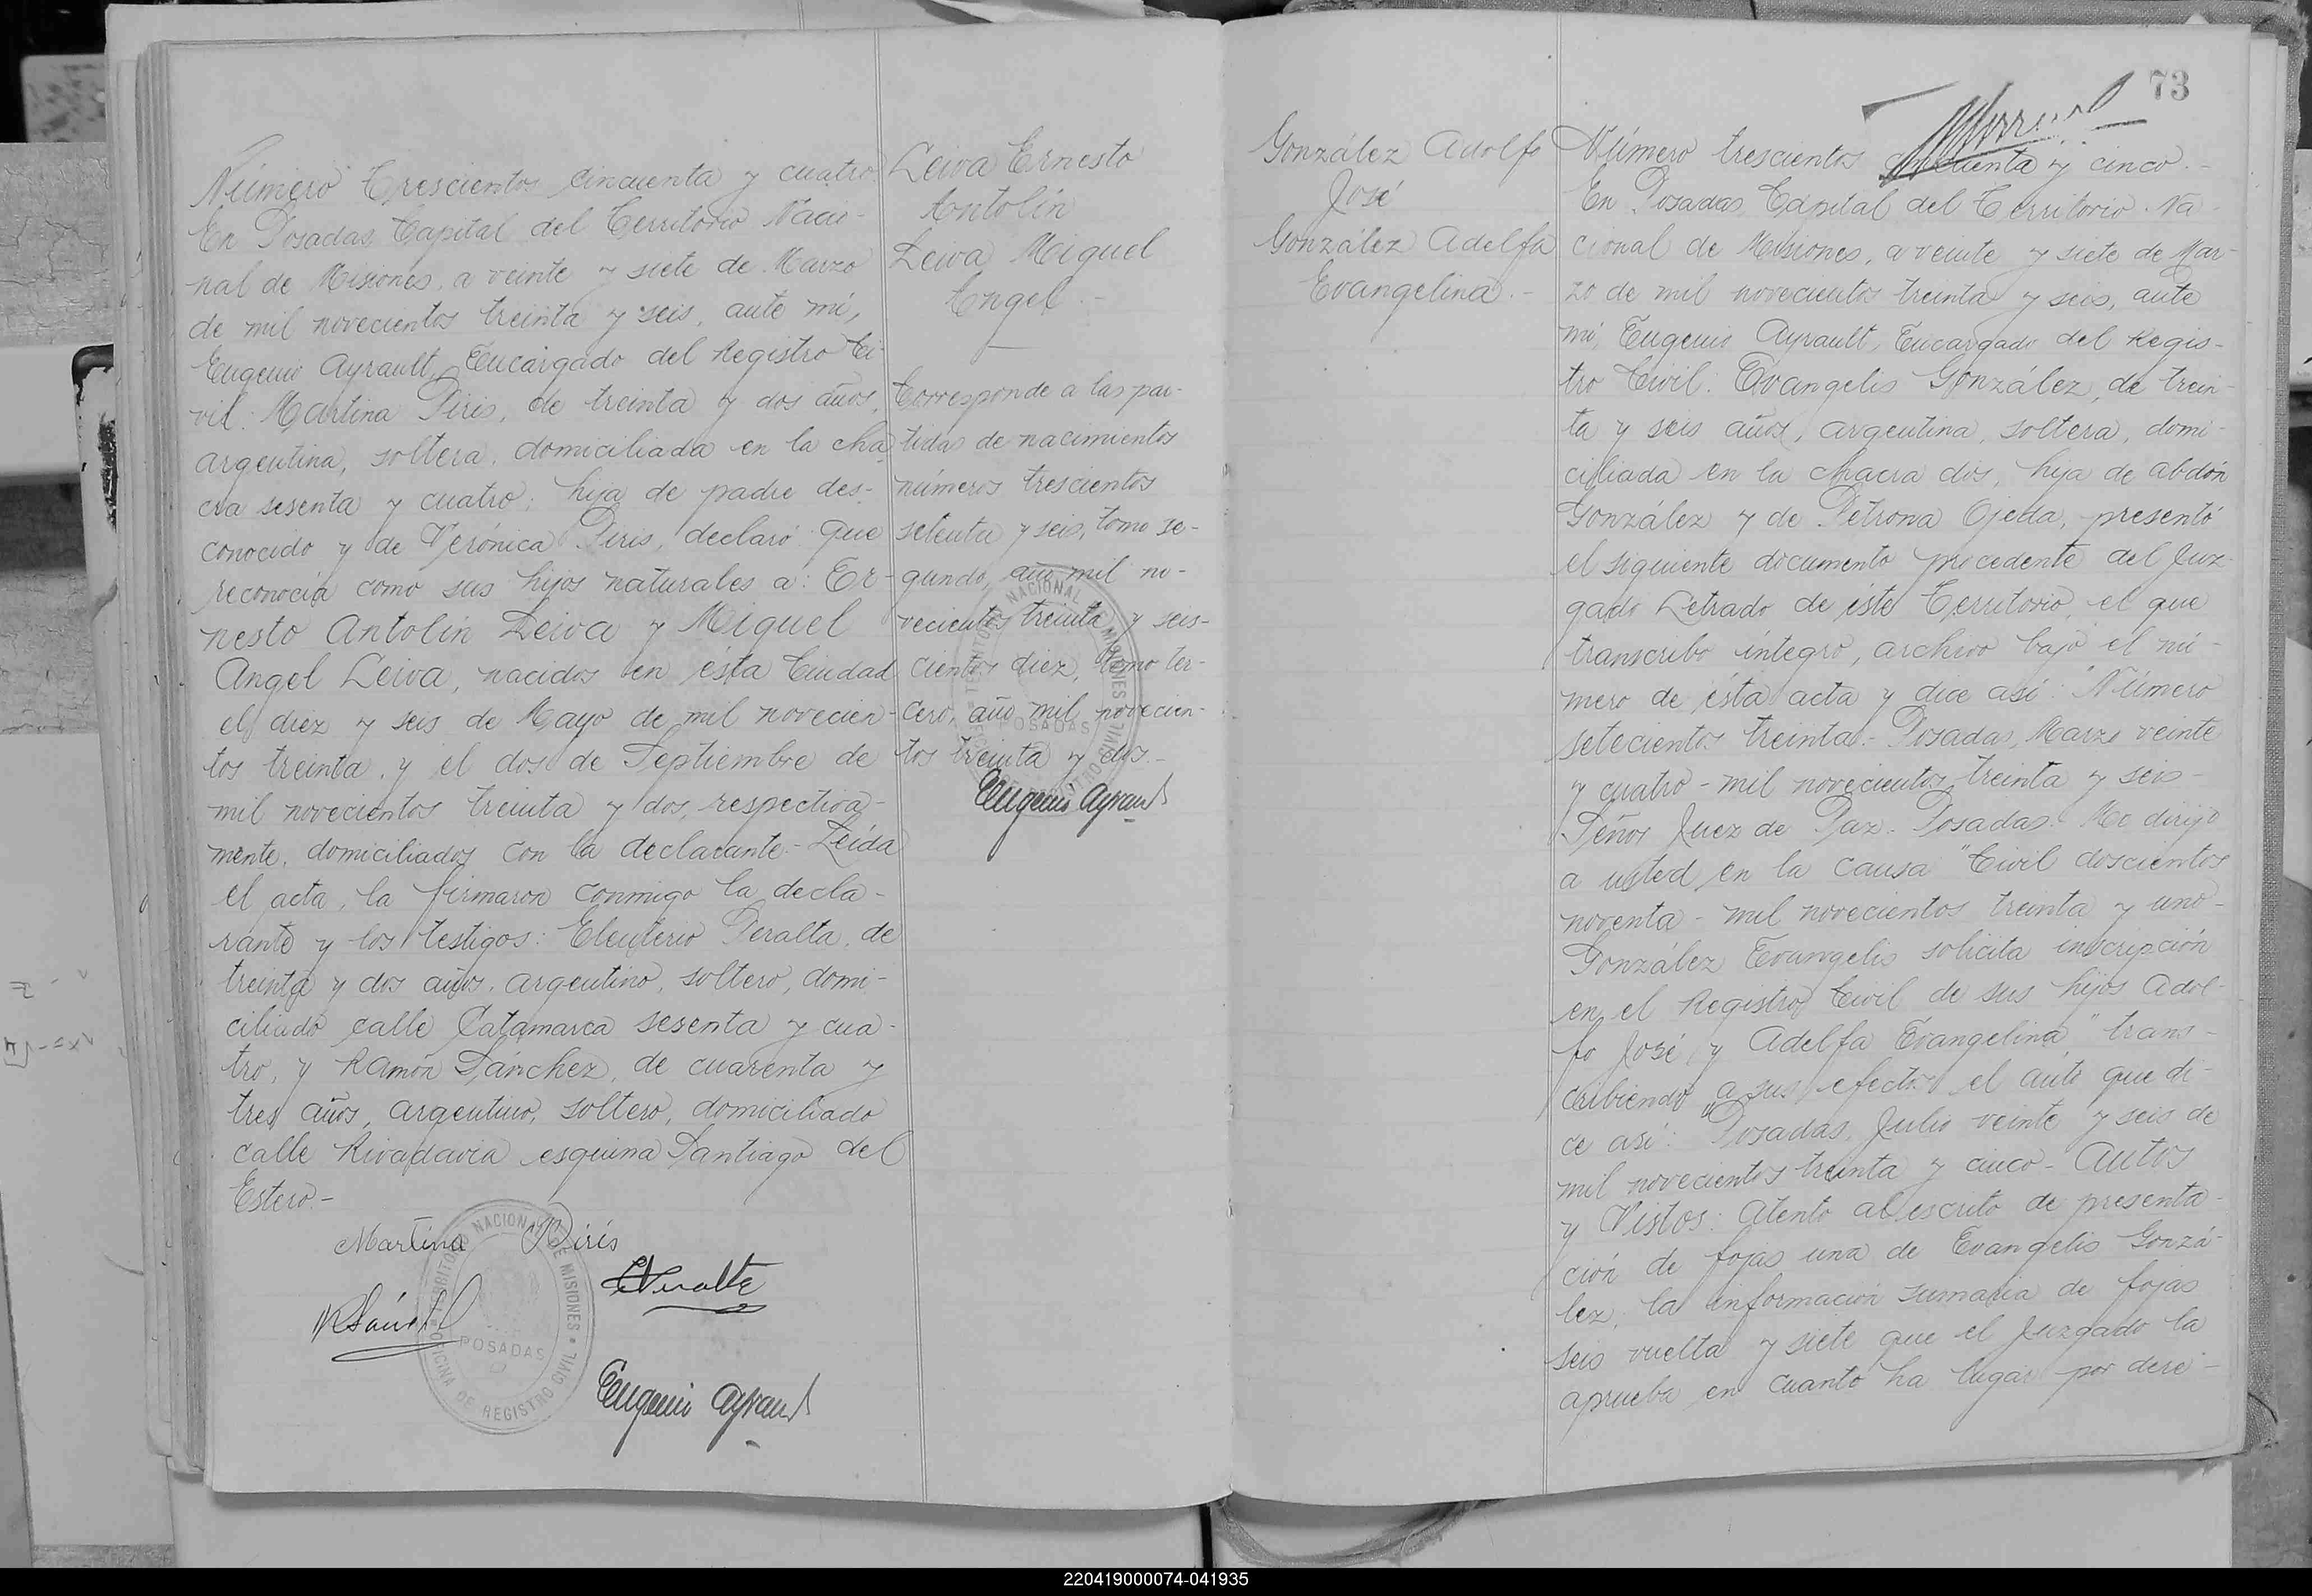 Número Trescientos cincuenta y cuatro.
En Posadas Capital del Territorio Nacio-
nal de Misiones, a veinte y siete de Marzo
de mil novecientos treinta y seis, ante mí,
Eugenio Ayrault, Encargado del Registro Ci-
vil: Martina Piris, de treinta y dos años,
argentina, soltera, domiciliada en la cha-
cra sesenta y cuatro; hija de padre des-
conocido y de Verónica Piris, declaró: Que
reconocía como sus hijos naturales a: Er-
nesto Antolín Leiva y Miguel
Angel Leiva, nacidos en ésta Ciudad
el diez y seis de Mayo de mil novecien-
tos treinta y el dos de Septiembre de
mil novecientos treinta y dos, respectiva-
mente, domiciliados con la declarante.- Leída
el acta, la firmaron conmigo la decla-
rante y los testigos: Eleuterio Peralta, de
treinta y dos años, argentino, soltero, domi-
ciliado calle Catamarca sesenta y cua-
tro, y Ramón Sánchez, de cuarenta y
tres años, argentino, soltero, domiciliado
calle Rivadavia esquina Santiago del
Estero.-
Martina Piris
EPeralta
RSánch
Eugenio Ayrault
TERRITORIO NACIONAL DE MISIONES
POSADAS
OFICINA DE REGISTRO CIVIL
Leiva Ernesto
Antolín
Leiva Miguel
Angel.-
Corresponde a las par-
tidas de nacimientos
números trescientos
setenta y seis, tomo se-
gundo, año mil no-
vecientos treinta y seis-
cientos diez, tomo ter-
cero, año mil novecien-
tos treinta y dos.-
Eugenio Ayrault
TERRITORIO NACIONAL DE MISIONES
POSADAS
OFICINA DE REGISTRO CIVIL
73
González Adolfo
José
González Adelfa
Evangelina.-
Número trescientos cincuenta y cinco.-
En Posadas Capital del Territorio Na-
cional de Misiones, a veinte y siete de Mar-
zo de mil novecientos treinta y seis, ante
mí, Eugenio Ayrault, Encargado del Regis-
tro Civil: Evangelis González, de trein-
ta y seis años, argentina, soltera, domi-
ciliada en la chacra dos, hija de Abdón
González y de Petrona Ojeda, presentó
el siguiente documento procedente del Juz-
gado Letrado de éste Territorio, el que
transcribo íntegro, archivo bajo el nú-
mero de ésta acta y dice así: "Número
setecientos treinta.- Posadas, Marzo veinte
y cuatro - mil novecientos treinta y seis -
Señor Juez de Paz. Posadas. Me dirijo
a usted en la causa "Civil doscientos
noventa - mil novecientos treinta y uno -
González Evangelis solicita inscripción
en el Registro Civil de sus hijos Adol-
fo José y Adelfa Evangelina" trans-
cribiendo a sus efectos el auto que di-
ce así: "Posadas, Julio veinte y seis de
mil novecientos treinta y cinco - Autos
y Vistos: Atento al escrito de presenta-
ción de fojas una de Evangelis Gonzá-
lez, la información sumaria de fojas
seis vuelta y siete que el Juzgado la
aprueba en cuanto ha lugar por dere-
220419000074-041935